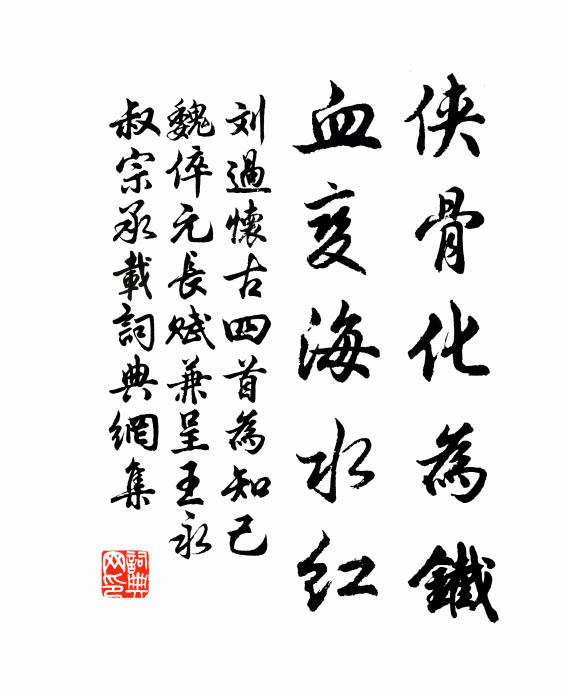 侠骨化為鐵
血变海水红
刘過懷古四首為知己
魏倅元長赋兼呈王永
叔宗丞載詞典網集
詞典网印